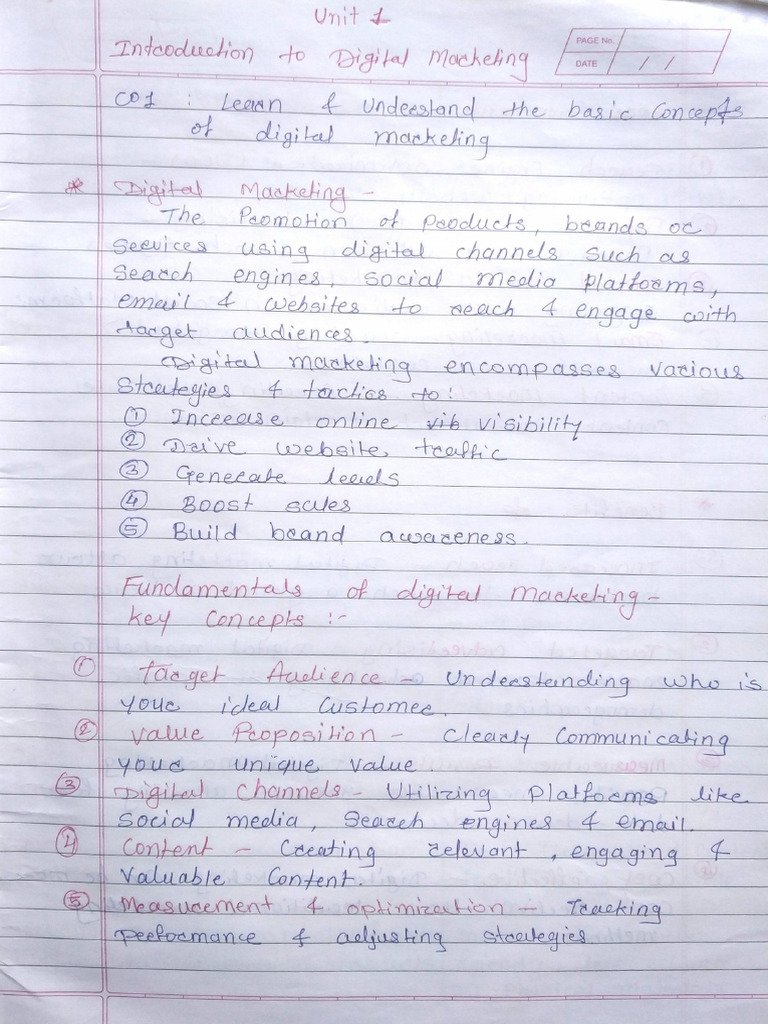 Unit 1
Introduction to Digital Marketing
PAGE No.
DATE / /
CO1 : Learn & Understand the basic Concepts
of digital marketing
* Digital Marketing -
The Promotion of Products, brands or
Services using digital channels such as
Search engines, social media platforms,
email & websites to reach & engage with
target audiences.
Digital marketing encompasses various
Strategies & tactics to:
① Increase online visibility
② Drive website traffic
③ Generate leads
④ Boost sales
⑤ Build brand awareness.
Fundamentals of digital marketing -
Key Concepts :-
① Target Audience - Understanding who is
your ideal Customer.
② Value Proposition - Clearly Communicating
your unique value.
③ Digital Channels - Utilizing Platforms like
Social media, Search engines & email.
④ Content - Creating relevant, engaging &
Valuable Content.
⑤ Measurement & optimization - Tracking
Performance & adjusting strategies.